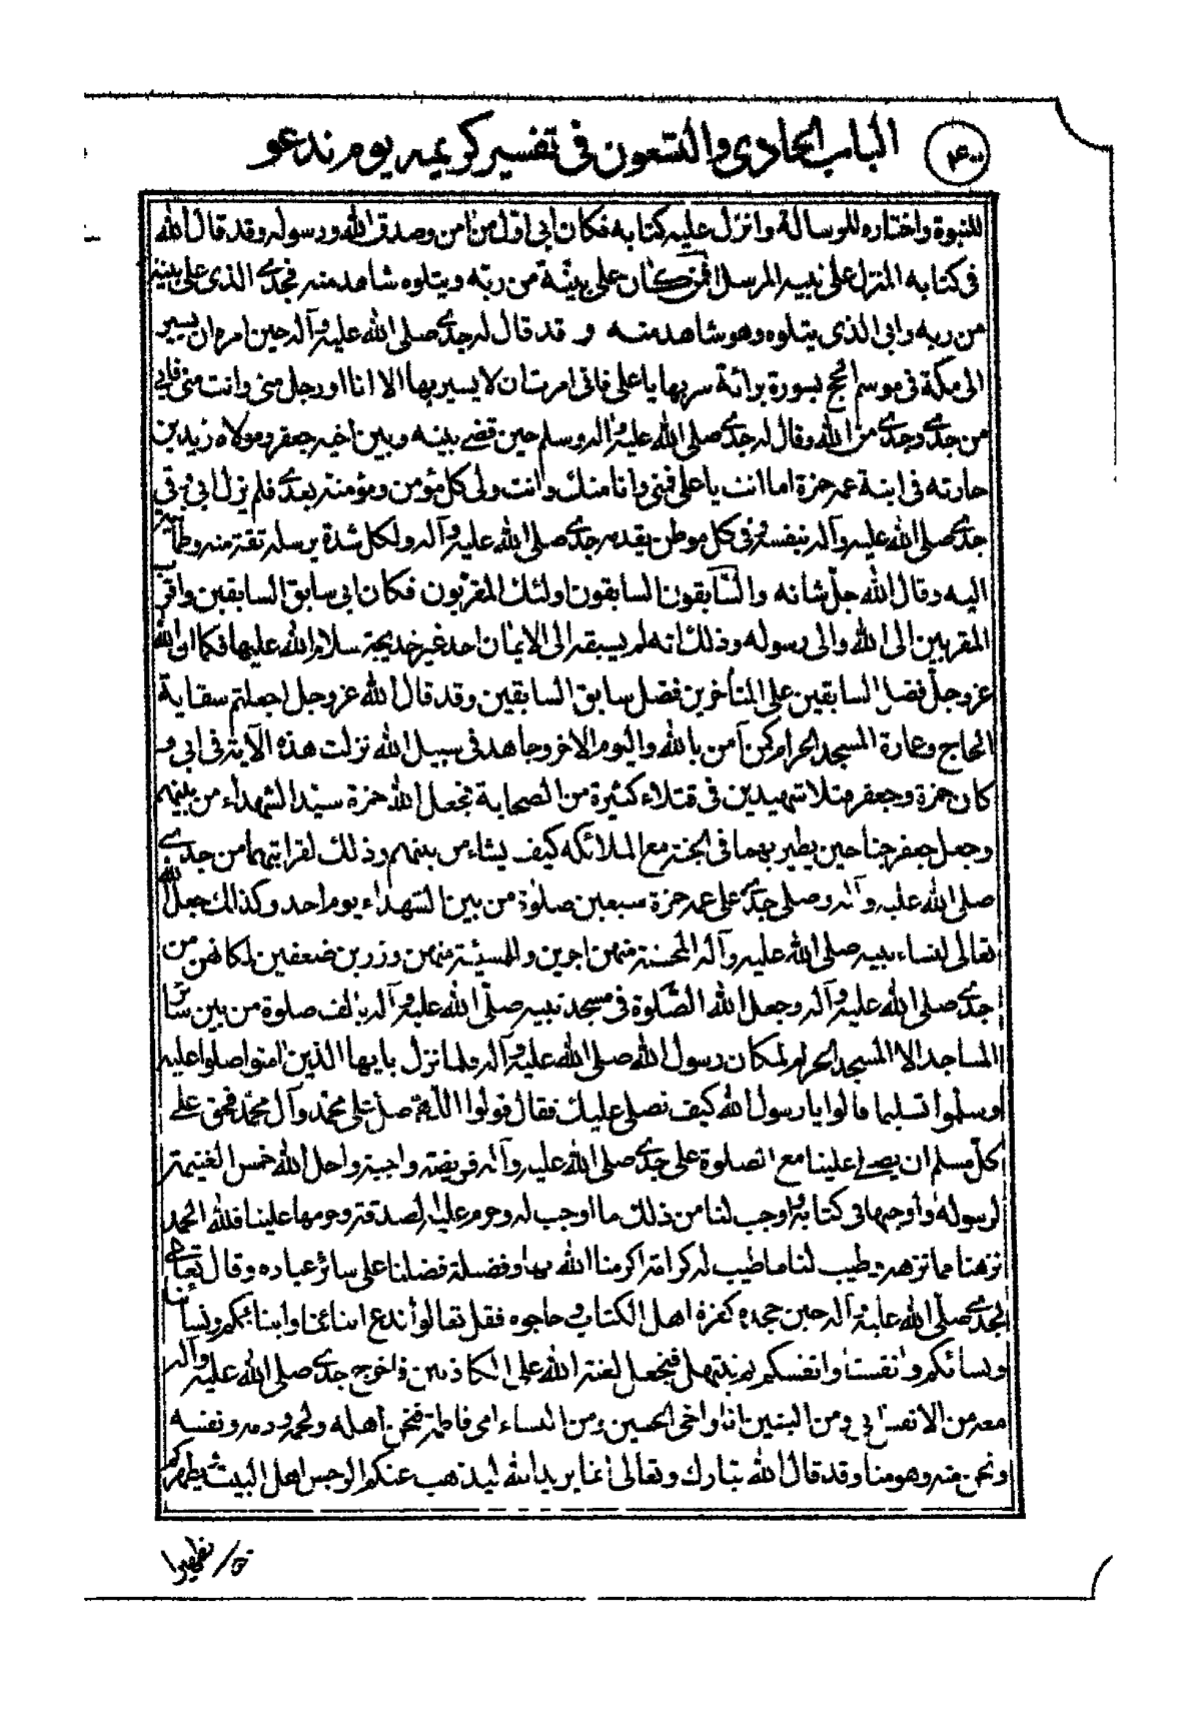 ٤٠٠ الباب الحادی والتسعون فی تفسیر کریمه یوم ندعو
للنبوة واختاره للرسالة وانزل علیه کتابه فکان ابی اول من امن وصدق الله ورسوله وقد قال الله
فی کتابه المنزل علی نبیه المرسل افمن کان علی بینة من ربه ویتلوه شاهد منه فجدی الذی علی بینة
من ربه وابی الذی یتلوه وهو شاهد منه وقد قال له جدی صلی الله علیه وآله حین امره ان یسیر
الی مکة فی موسم الحج بسورة برائة سر بها یا علی فانی امرت ان لا یسیر بها الا انا او رجل منی وانت منی فابی
من جدی وجدی من الله وقال له جدی صلی الله علیه وآله وسلم حین قضی بینه وبین اخیه جعفر ومولاه زید بن
حارثه فی ابنة عمه حمزة اما انت یا علی فمنی وانا منک وانت ولی کل مؤمن ومؤمنة بعدی فلم یزل ابی وقی
جدی صلی الله علیه وآله بنفسه وفی کل موطن یقدمه جدی صلی الله علیه وآله ولکل شدة یرسله ثقة منه وطمأنینة
الیه وقال الله جل شانه والسابقون السابقون اولئک المقربون فکان ابی سابق السابقین واقرب
المقربین الی الله والی رسوله وذلک انه لم یسبقه الی الایمان احد غیر خدیجة سلام الله علیها فکما ان الله
عز وجل فضل السابقین علی المتأخرین فضل سابق السابقین وقد قال الله عز وجل اجعلتم سقایة
الحاج وعمارة المسجد الحرام کمن آمن بالله والیوم الاخر وجاهد فی سبیل الله نزلت هذه الآیة فی ابی و
کان حمزة وجعفر قتلا شهیدین فی قتلاء کثیرة من الصحابة فجعل الله حمزة سید الشهداء من بینهم
وجعل جعفر جناحین یطیر بهما فی الجنة مع الملائکه کیف یشاء من بینهم وذلک لقرابتهما من جدی
صلی الله علیه وآله وصلی جدی علی عمه حمزة سبعین صلوة من بین الشهداء یوم احد وکذلک جعل الله
تعالی لنساء نبیه صلی الله علیه وآله المحسنة منهن اجرین وللمسیئة منهن وزرین ضعفین لمکانهن من
جدی صلی الله علیه وآله وجعل الله الصلوة فی مسجد نبیه صلی الله علیه وآله بالف صلوة من بین سائر
المساجد الا المسجد الحرام لمکان رسول الله صلی الله علیه وآله ولما نزل یا یها الذین امنوا صلوا علیه
وسلموا تسلیما قالوا یا رسول الله کیف نصلی علیک فقال قولوا اللهم صل علی محمد وآل محمد فحق علی
کل مسلم ان یصلی علینا مع الصلوة علی جدی صلی الله علیه وآله فریضة واجبة واحل الله خمس الغنیمة
لرسوله واوجبها فی کتابه واوجب لنا من ذلک ما اوجب له وحرم علیه الصدقة وحرمها علینا فلله الحمد
نزهنا مما نزهه وطیب لنا ما طیب له کرامة اکرمنا الله بها وفضیلة فضلنا علی سائر عباده وقال تعالی
لجدی صلی الله علیه وآله حین جحده کفرة اهل الکتاب وحاجوه فقل تعالوا ندع ابنائنا وابنائکم ونسائنا
ونسائکم وانفسنا وانفسکم ثم نبتهل فنجعل لعنة الله علی الکاذبین فاخرج جدی صلی الله علیه وآله
معه من الانفس ابی ومن البنین انا واخی الحسین ومن النساء امی فاطمة فنحن اهله ولحمه ودمه ونفسه
ونحن منه وهو منا وقد قال الله تبارک وتعالی انما یرید الله لیذهب عنکم الرجس اهل البیت ویطهرکم
تطهیرا